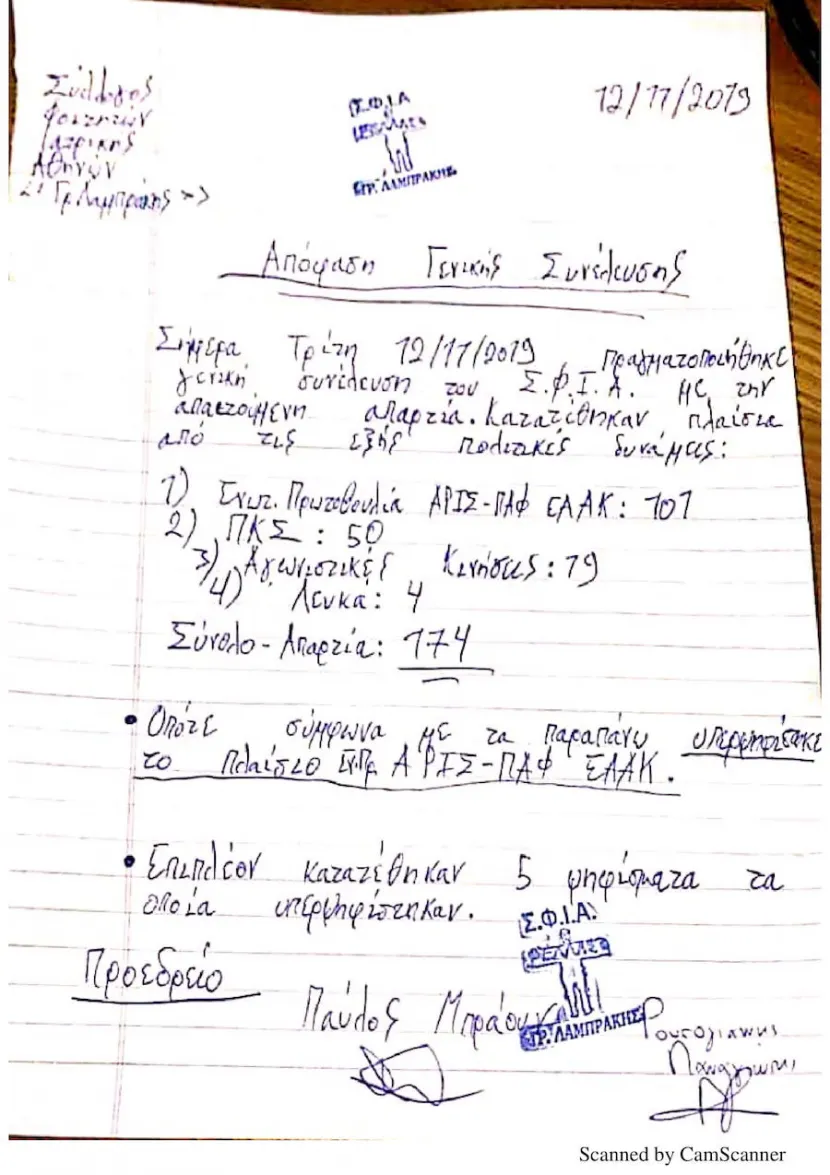 Σύλλογος
Φοιτητών
Ιατρικής
Αθηνών
<<Γρ. Λαμπράκης>>
Σ.Φ.Ι.Α
ΓΡ. ΛΑΜΠΡΑΚΗΣ
12/11/2019
Απόφαση Γενικής Συνέλευσης
Σήμερα Τρίτη 12/11/2019, πραγματοποιήθηκε
γενική συνέλευση του Σ.Φ.Ι.Α. με την
απαιτούμενη απαρτία. Κατατέθηκαν πλαίσια
από τις εξής πολιτικές δυνάμεις:
1) Ενωτ. Πρωτοβουλία ΑΡΙΣ-ΠΑΦ ΕΑΑΚ: 101
2) ΠΚΣ: 50
3) Αγωνιστικές Κινήσεις: 19
4) Λευκά: 4
Σύνολο - Απαρτία: 174
• Οπότε σύμφωνα με τα παραπάνω υπερψηφίστηκε
το πλαίσιο Εν.Πρ. ΑΡΙΣ-ΠΑΦ ΕΑΑΚ.
• Επιπλέον κατατέθηκαν 5 ψηφίσματα τα
οποία υπερψηφίστηκαν.
Σ.Φ.Ι.Α.
ΓΡ. ΛΑΜΠΡΑΚΗΣ
Προεδρείο
Παύλος
Παναγιώτης
Scanned by CamScanner